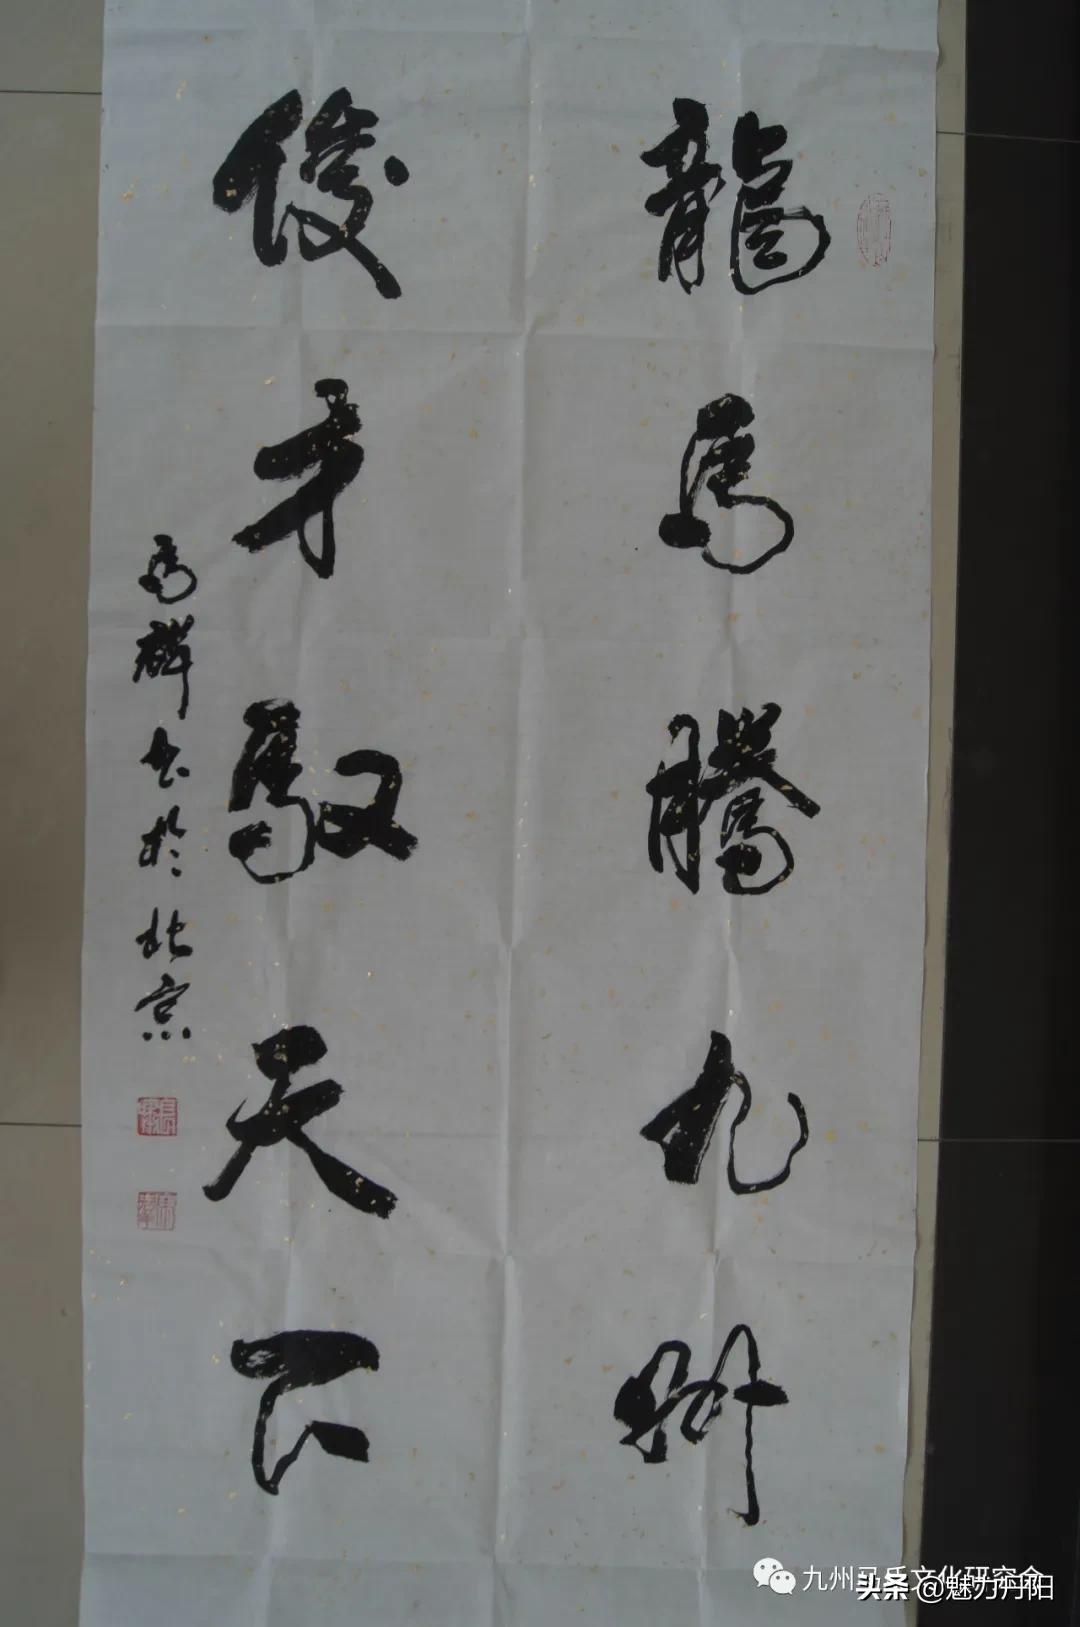 龍馬騰九州
俊才馭天下
馬辉书於北京
九州马氏文化研究会
头条 @魅力丹阳